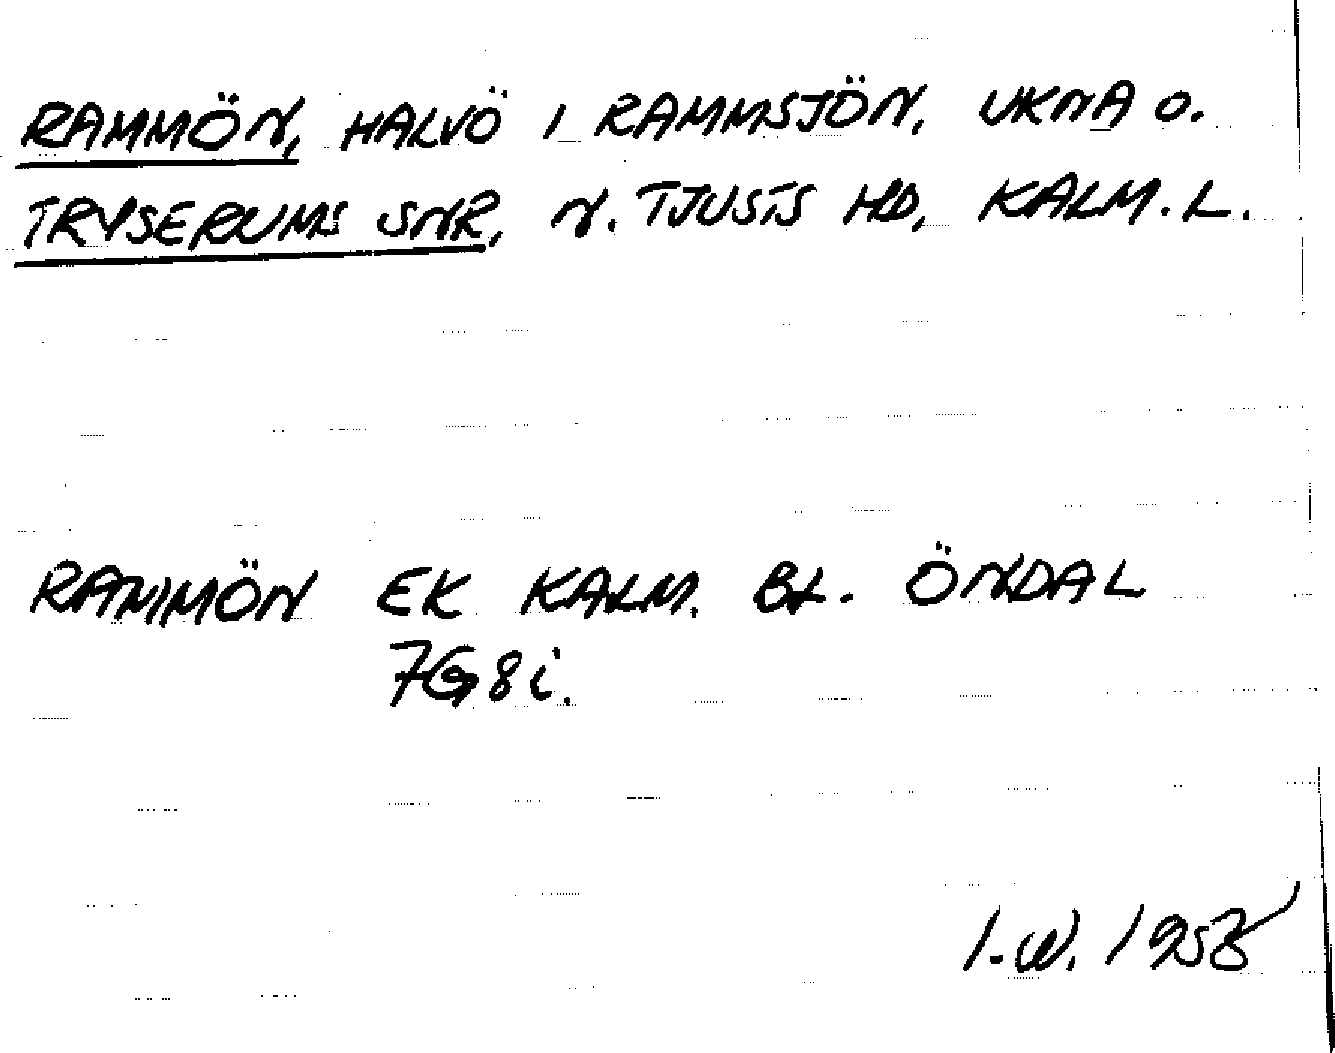 RAMMÖN, HALVÖ I RAMMSJÖN, UKNA O.
TRYSERUMS SNR, N. TJUSTS HD, KALM. L.
RAMMÖN EK KALM. BL. ÖNDAL
7G8i.
I.W. 1958